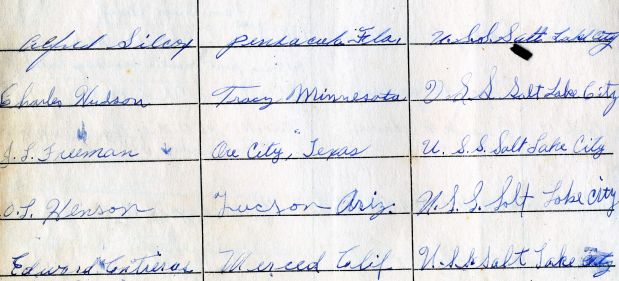 Alfred Silcox Pensacola Fla. U.S.S Salt Lake City
Charles Hudson Tracy Minnesota U.S.S Salt Lake City
J. L. Freeman Ore City, Texas U. S. S. Salt Lake City
O.L. Henson Tucson Ariz. U.S.S. Salt Lake City
Edward Contreras Merced Calif U.S.S. Salt Lake City